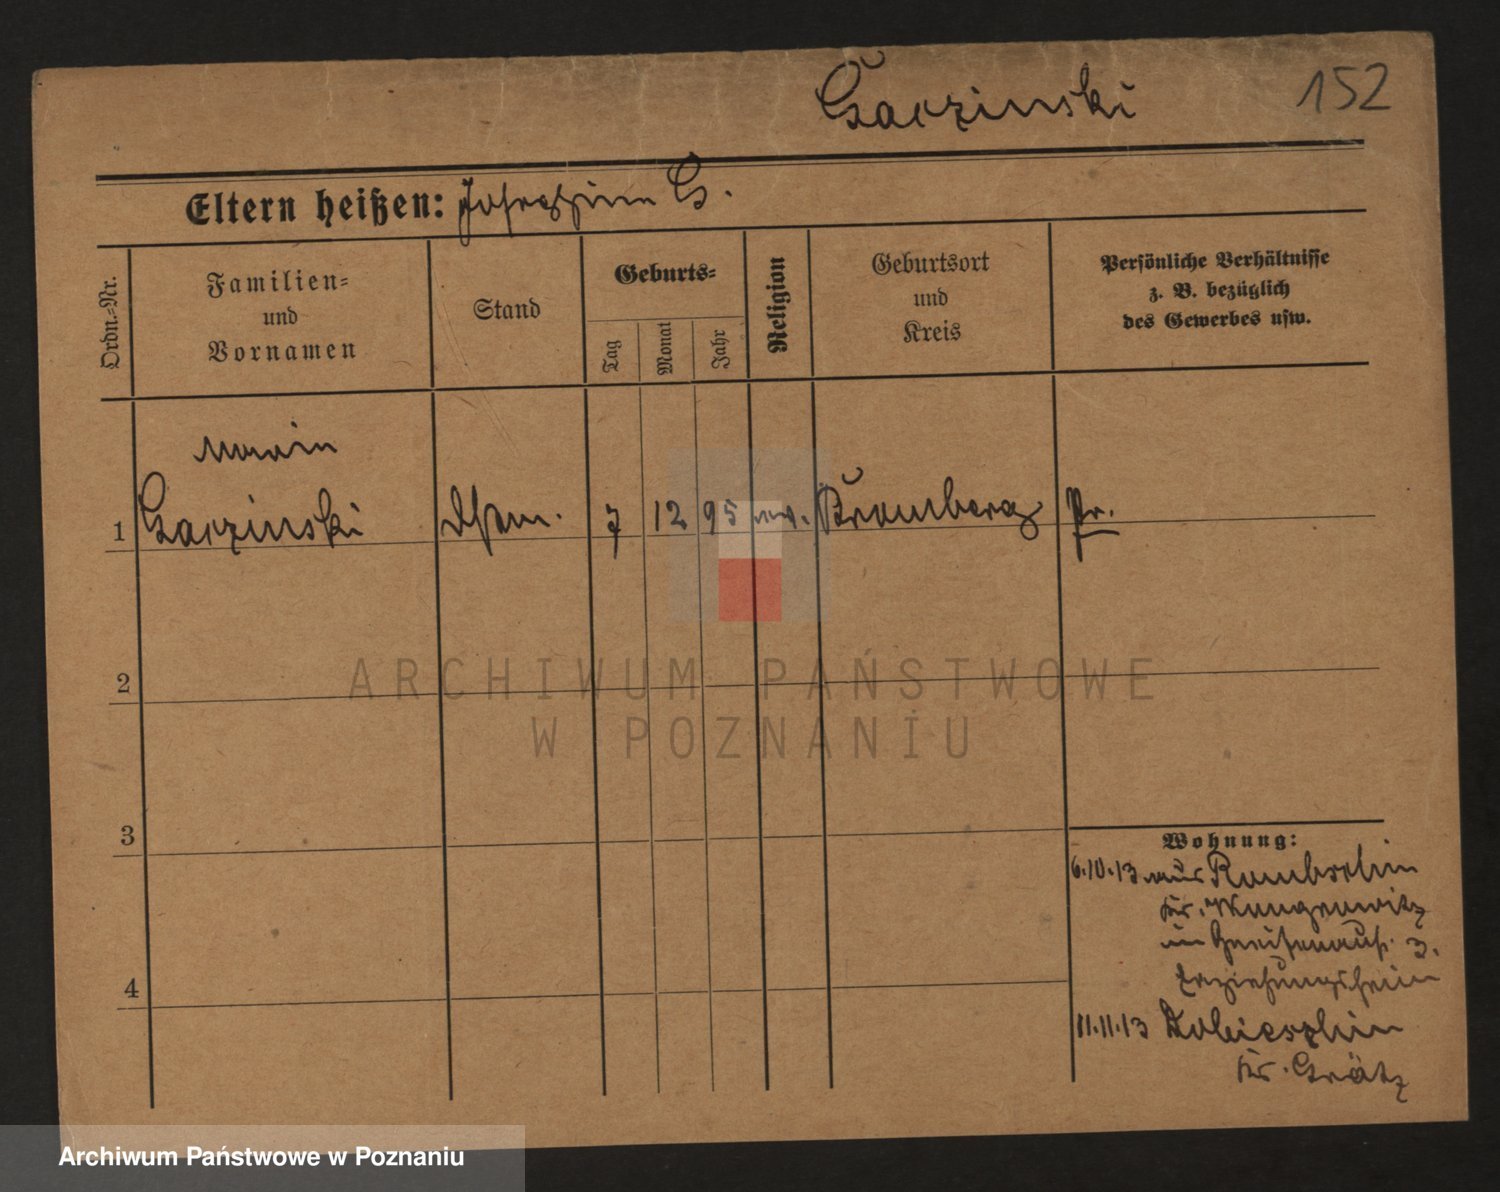 Gaczinski 152
Eltern heißen: Josephine G.
Ordn.-Nr.
Familien=
und
Vornamen
Stand
Geburts=
Tag
Monat
Jahr
Religion
Geburtsort
und
Kreis
Persönliche Verhältnisse
z. B. bezüglich
des Gewerbes usw.
Gaczinski
1 7 12 95 ev. Bromberg Pr.
2
3
4
Wohnung:
6.10.13 aus Rombschin
Kr. Wongrowitz
Erziehungsheim
11.11.13
Kr. Grätz
ARCHIWUM PAŃSTWOWE
W POZNANIU
Archiwum Państwowe w Poznaniu